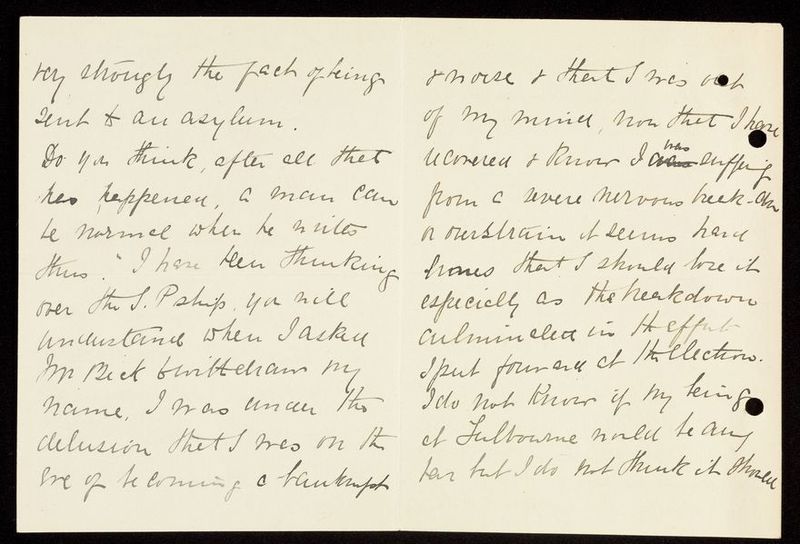 very strongly the fact of being
sent to an asylum.
Do you think, after all that
has happened, a man can
be normal when he writes
thus. "I have been thinking
over the S.P ship. you will
understand when I asked
Mr Beck to withdraw my
name, I was under the
delusion that I was on the
eve of becoming a bankrupt
& worse & that I was out
of my mind, now that I have
recovered & know I was suffering
from a severe nervous break-
or overstrain it seems hard
that I should lose it
especially as the breakdown
culminated in the effort
I put forward at the Election.
I do not know if my being
at Fulbourne would be any
bar but I do not think it should